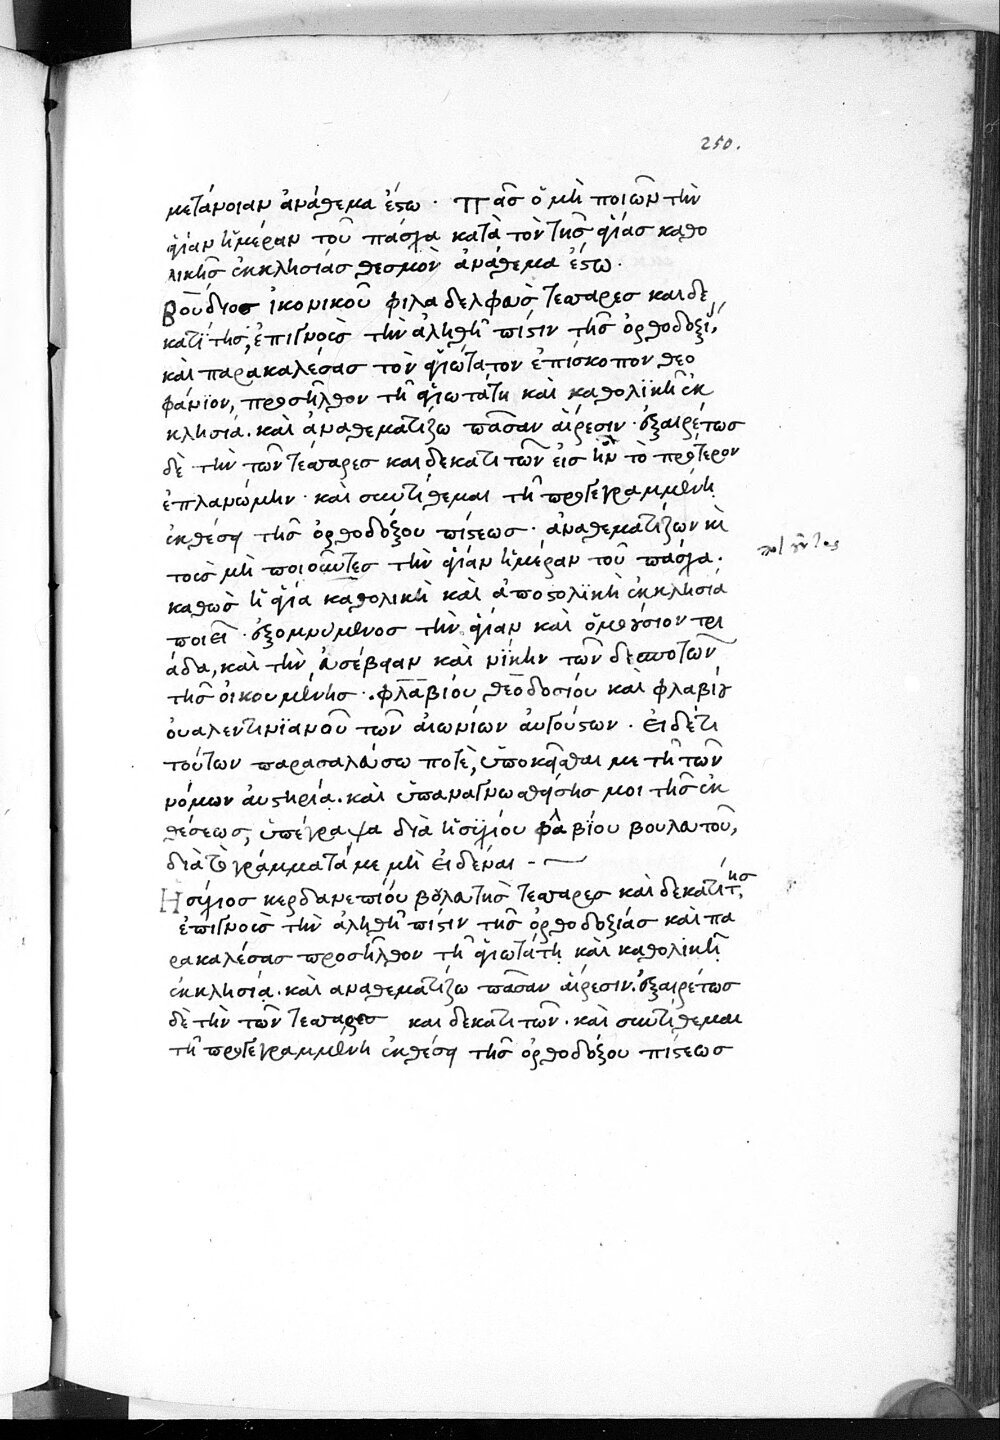 250.
μετάνοιαν ἀνάθεμα ἔστω · Πᾶσ ὁ μὴ ποιῶν τὴν
ἁγίαν ἡμέραν τοῦ πάσχα κατὰ τὸν τῆσ ἁγίασ καθο
λικῆσ ἐκκλησίασ θεσμὸν ἀνάθεμα ἔστω.
Βούδιοσ ἰκονικοῦ φιλαδελφεὺσ τεσσαρεσ και δε
κατίτησ, ἐπιγνοὺσ τὴν ἀληθῆ πίστιν τῆσ ὀρθοδοξί,
καὶ παρακαλέσασ τὸν ἁγιώτατον ἐπίσκοπον θεο
φάνϊον, προσῆλθον τῆ ἁγιωτάτη καὶ καθολϊκῆ ἐκ
κλησία. καὶ ἀναθεματίζω πᾶσαν αἵρεσιν· ἐξαιρέτωσ
δὲ τὴν τῶν τεσσαρεσ και δεκατιτῶν εἰσ ἣν τὸ πρότερον
ἐπλανώμην· καὶ συντίθεμαι τῆ προγεγραμμένη
ἐκθέσει τῆσ ὀρθοδόξου πίστεωσ· ἀναθεματίζων καὶ
τοὺσ μὴ ποιοῦντεσ τὴν ἁγίαν ἡμέραν τοῦ πάσχα.
ποιοῦντας
καθὼσ ἡ ἁγία καθολικὴ καὶ ἀποστολϊκὴ ἐκκλησία
ποιεῖ· ἐξομνύμενοσ τὴν ἁγίαν καὶ ὁμοούσιον τρι
άδα, καὶ τὴν εὐσέβειαν καὶ νίκην τῶν δεσποτῶν
τῆσ οἰκουμένησ·. φλαβίου θεοδοσίου καὶ φλαβίου
οὐαλεντινϊανοῦ τῶν αἰωνίων αὐγούστων· εἰ δέ τι
τούτων παρασαλεύσω ποτὲ, ὑποκεῖσθαι με τῆ τῶν
νόμων αὐστηρία. καὶ ὑπαναγνωσθείσησ μοι τῆσ ἐκ
θέσεωσ, ὑπέγραψα διὰ ἡσϋχίου φλαβίου βουλευτοῦ,
διὰ τὸ γράμματά με μὴ εἰδέναι -
Ησύχιοσ κερδανεπίου βουλευτὴσ τεσσαρεσ καὶ δεκατίτησ,
ἐπιγνοὺσ τὴν ἀληθῆ πίστιν τῆσ ὀρθοδοξίασ καὶ πα
ρακαλέσασ προσῆλθον τῆ ἁγιωτάτη καὶ καθολϊκῆ
ἐκκλησία. καὶ αναθεματίζω πᾶσαν αἵρεσιν. ἐξαιρέτωσ
δὲ τὴν τῶν τεσσαρεσ και δεκατιτῶν. καὶ συντίθεμαι
τῆ προγεγραμμένη ἐκθέσει τῆσ ὀρθοδόξου πίστεωσ